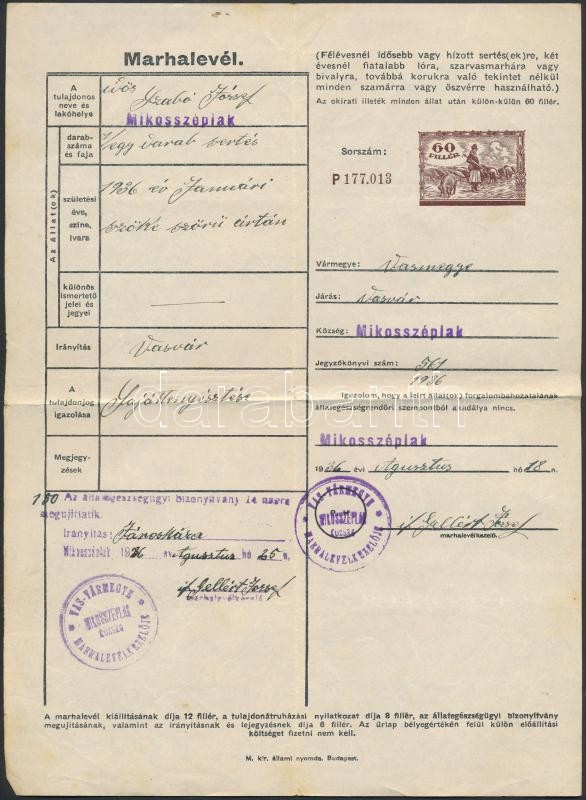 Marhalevél.
A tulajdonos neve és lakóhelye
idős
Szabó József
Mikosszéplak
Az állat(ok)
darabszáma és faja
1 egy darab sertés
születési éve, színe, ivara
1936 év Januári
szőke szőrű ártán
különös ismertető jelei és jegyei
Irányítás
Vasvár
A tulajdonjog igazolása
Saját tenyésztése
Megjegyzések
(Félévesnél idősebb vagy hízott sertés(ek)re, két
évesnél fiatalabb lóra, szarvasmarhára vagy
bivalyra, továbbá korukra való tekintet nélkül
minden szamárra vagy öszvérre használható.)
Az okirati illeték minden állat után külön-külön 60 fillér.
Sorszám:
P 177.013
60
FILLÉR
Vármegye: Vasmegye
Járás: Vasvár
Község: Mikosszéplak
Jegyzőkönyvi szám: 561
1936
Igazolom, hogy a leírt állat(ok) forgalombahozatalának
állategészségrendőri szempontból akadálya nincs.
Mikosszéplak
1936 évi Agusztus hó 18 n.
if Gellért József
marhalevélkezelő.
VAS-VÁRMEGYE
MIKOSSZÉPLAK
KÖZSÉG
MARHALEVELKEZELŐJE
Az állategészségügyi bizonyítvány 14 napra
megujíttatik.
Irányítás: Jánosháza
Mikosszéplak 1936 év Agusztus hó 25 n.
if Gellért József
marhalevélkezelő
VAS-VÁRMEGYE
MIKOSSZÉPLAK
KÖZSÉG
MARHALEVELKEZELŐJE
A marhalevél kiállításának díja 12 fillér, a tulajdonátruházási nyilatkozat díja 8 fillér, az állategészségügyi bizonyítvány
megujításának, valamint az irányításnak és lejegyzésnek díja 6 fillér. Az űrlap bélyegértékén felül külön előállítási
költséget fizetni nem kell.
M. kir. állami nyomda. Budapest.
darabanth